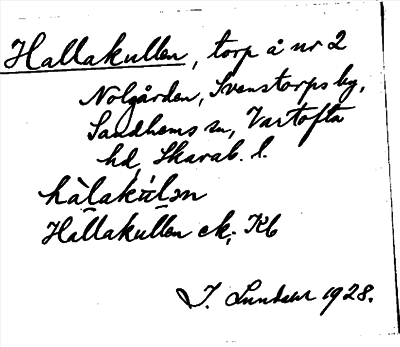 Hallakullen, torp å nr 2
Nolgården, Svenstorps by,
Sandhems sn, Vartofta
hd, Skarab. l.
hàlakúlən
Hallakullen ek, Kb
J. Lundahl 1928.